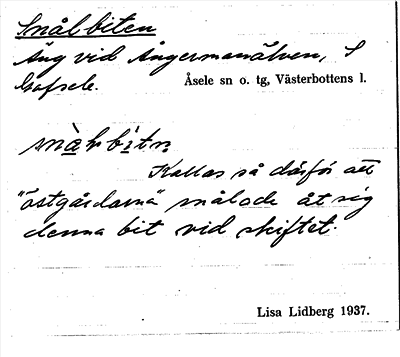 Snålbiten
Äng vid Ångermanälven, S
Gafsele. Åsele sn o. tg, Västerbottens l.
Kallas så därför att
"östgårdarna" snålade åt sig
denna bit vid skiftet.
Lisa Lidberg 1937.